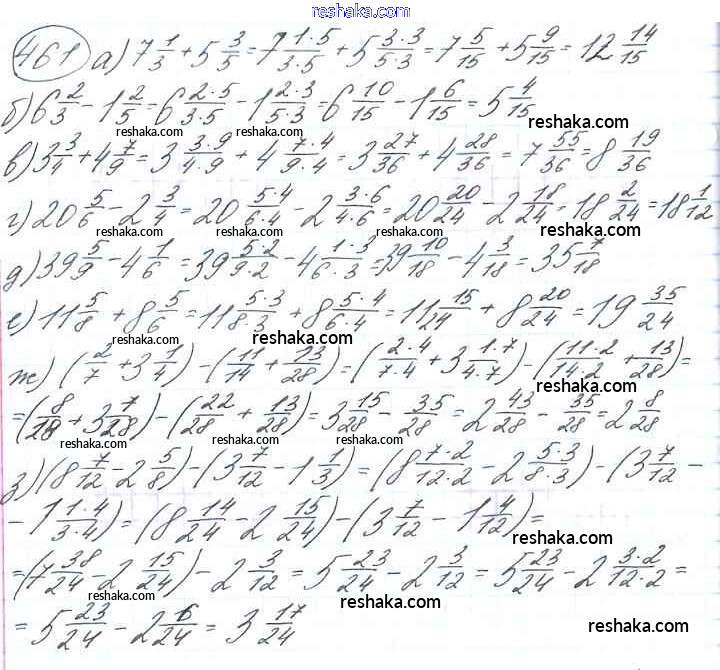 reshaka.com
461 а) 7 1/3 + 5 3/5 = 7 1·5/3·5 + 5 3·3/5·3 = 7 5/15 + 5 9/15 = 12 14/15
reshaka.com
б) 6 2/3 - 1 2/5 = 6 2·5/3·5 - 1 2·3/5·3 = 6 10/15 - 1 6/15 = 5 4/15
reshaka.com reshaka.com reshaka.com
в) 3 3/4 + 4 7/9 = 3 3·9/4·9 + 4 7·4/9·4 = 3 27/36 + 4 28/36 = 7 55/36 = 8 19/36
reshaka.com reshaka.com
г) 20 5/6 - 2 3/4 = 20 5·4/6·4 - 2 3·6/4·6 = 20 20/24 - 2 18/24 = 18 2/24 = 18 1/12
reshaka.com reshaka.com reshaka.com reshaka.com
д) 39 5/9 - 4 1/6 = 39 5·2/9·2 - 4 1·3/6·3 = 39 10/18 - 4 3/18 = 35 7/18
reshaka.com reshaka.com
е) 11 5/8 + 8 5/6 = 11 5·3/8·3 + 8 5·4/6·4 = 11 15/24 + 8 20/24 = 19 35/24
reshaka.com reshaka.com
ж) (2/7 + 3 1/4) - (11/14 + 13/28) = (2·4/7·4 + 3 1·7/4·7) - (11·2/14·2 + 13/28) =
reshaka.com reshaka.com
= (8/28 + 3 7/28) - (22/28 + 13/28) = 3 15/28 - 35/28 = 2 43/28 - 35/28 = 2 8/28
reshaka.com reshaka.com reshaka.com
з) (8 7/12 - 2 5/8) - (3 7/12 - 1 1/3) = (8 7·2/12·2 - 2 5·3/8·3) - (3 7/12 -
reshaka.com reshaka.com
- 1 1·4/3·4) = (8 14/24 - 2 15/24) - (3 7/12 - 1 4/12) =
reshaka.com reshaka.com
= (7 38/24 - 2 15/24) - 2 3/12 = 5 23/24 - 2 3/12 = 5 23/24 - 2 3·2/12·2 =
reshaka.com reshaka.com
= 5 23/24 - 2 6/24 = 3 17/24
reshaka.com reshaka.com